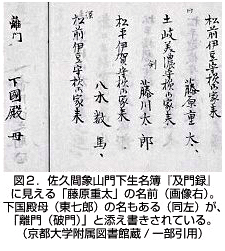 松前伊豆守様御家来
藤原重太、
土岐美濃守様御家来
藤川太郎
松平伊賀守様御家来
八木数馬、
松前伊豆守様御家来
離門 下國殿母
図2．佐久間象山門下生名簿『及門録』
に見える「藤原重太」の名前（画像右）。
下国殿母（東七郎）の名もある（同左）が、
「離門（破門）」と添え書きされている。
（京都大学附属図書館蔵／一部引用）